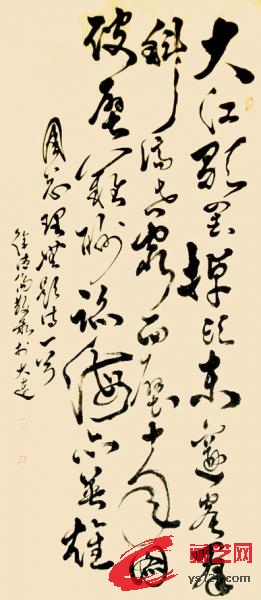 大江歌罢掉头东邃密群
科济世穷面壁十年图
破壁难酬蹈海亦英雄
周总理无题诗一首
于大连
藏艺网
ys721.com